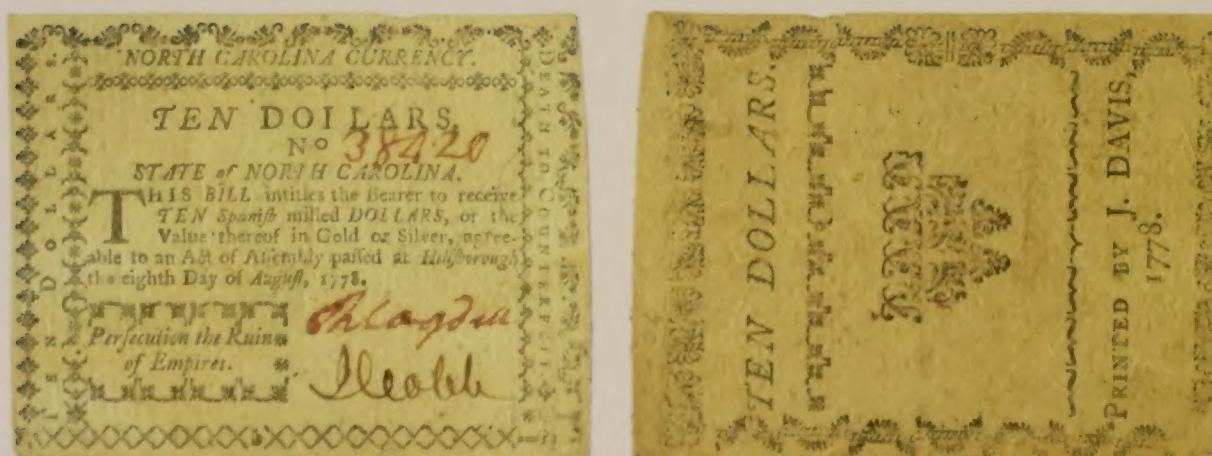 NORTH CAROLINA CURRENCY.
TEN DOLLARS.
No 38420
STATE of NORTH CAROLINA.
THIS BILL intitles the Bearer to receive
TEN Spaniſh milled DOLLARS, or the
Value thereof in Gold or Silver, agree-
able to an Act of Aſſembly paſſed at Hillſborough
the eighth Day of Auguſt, 1778.
Perſecution the Ruin
of Empires.
TEN DOLLARS.
DEATH TO COUNTERFEIT.
TEN DOLLARS.
PRINTED BY J. DAVIS,
1778.